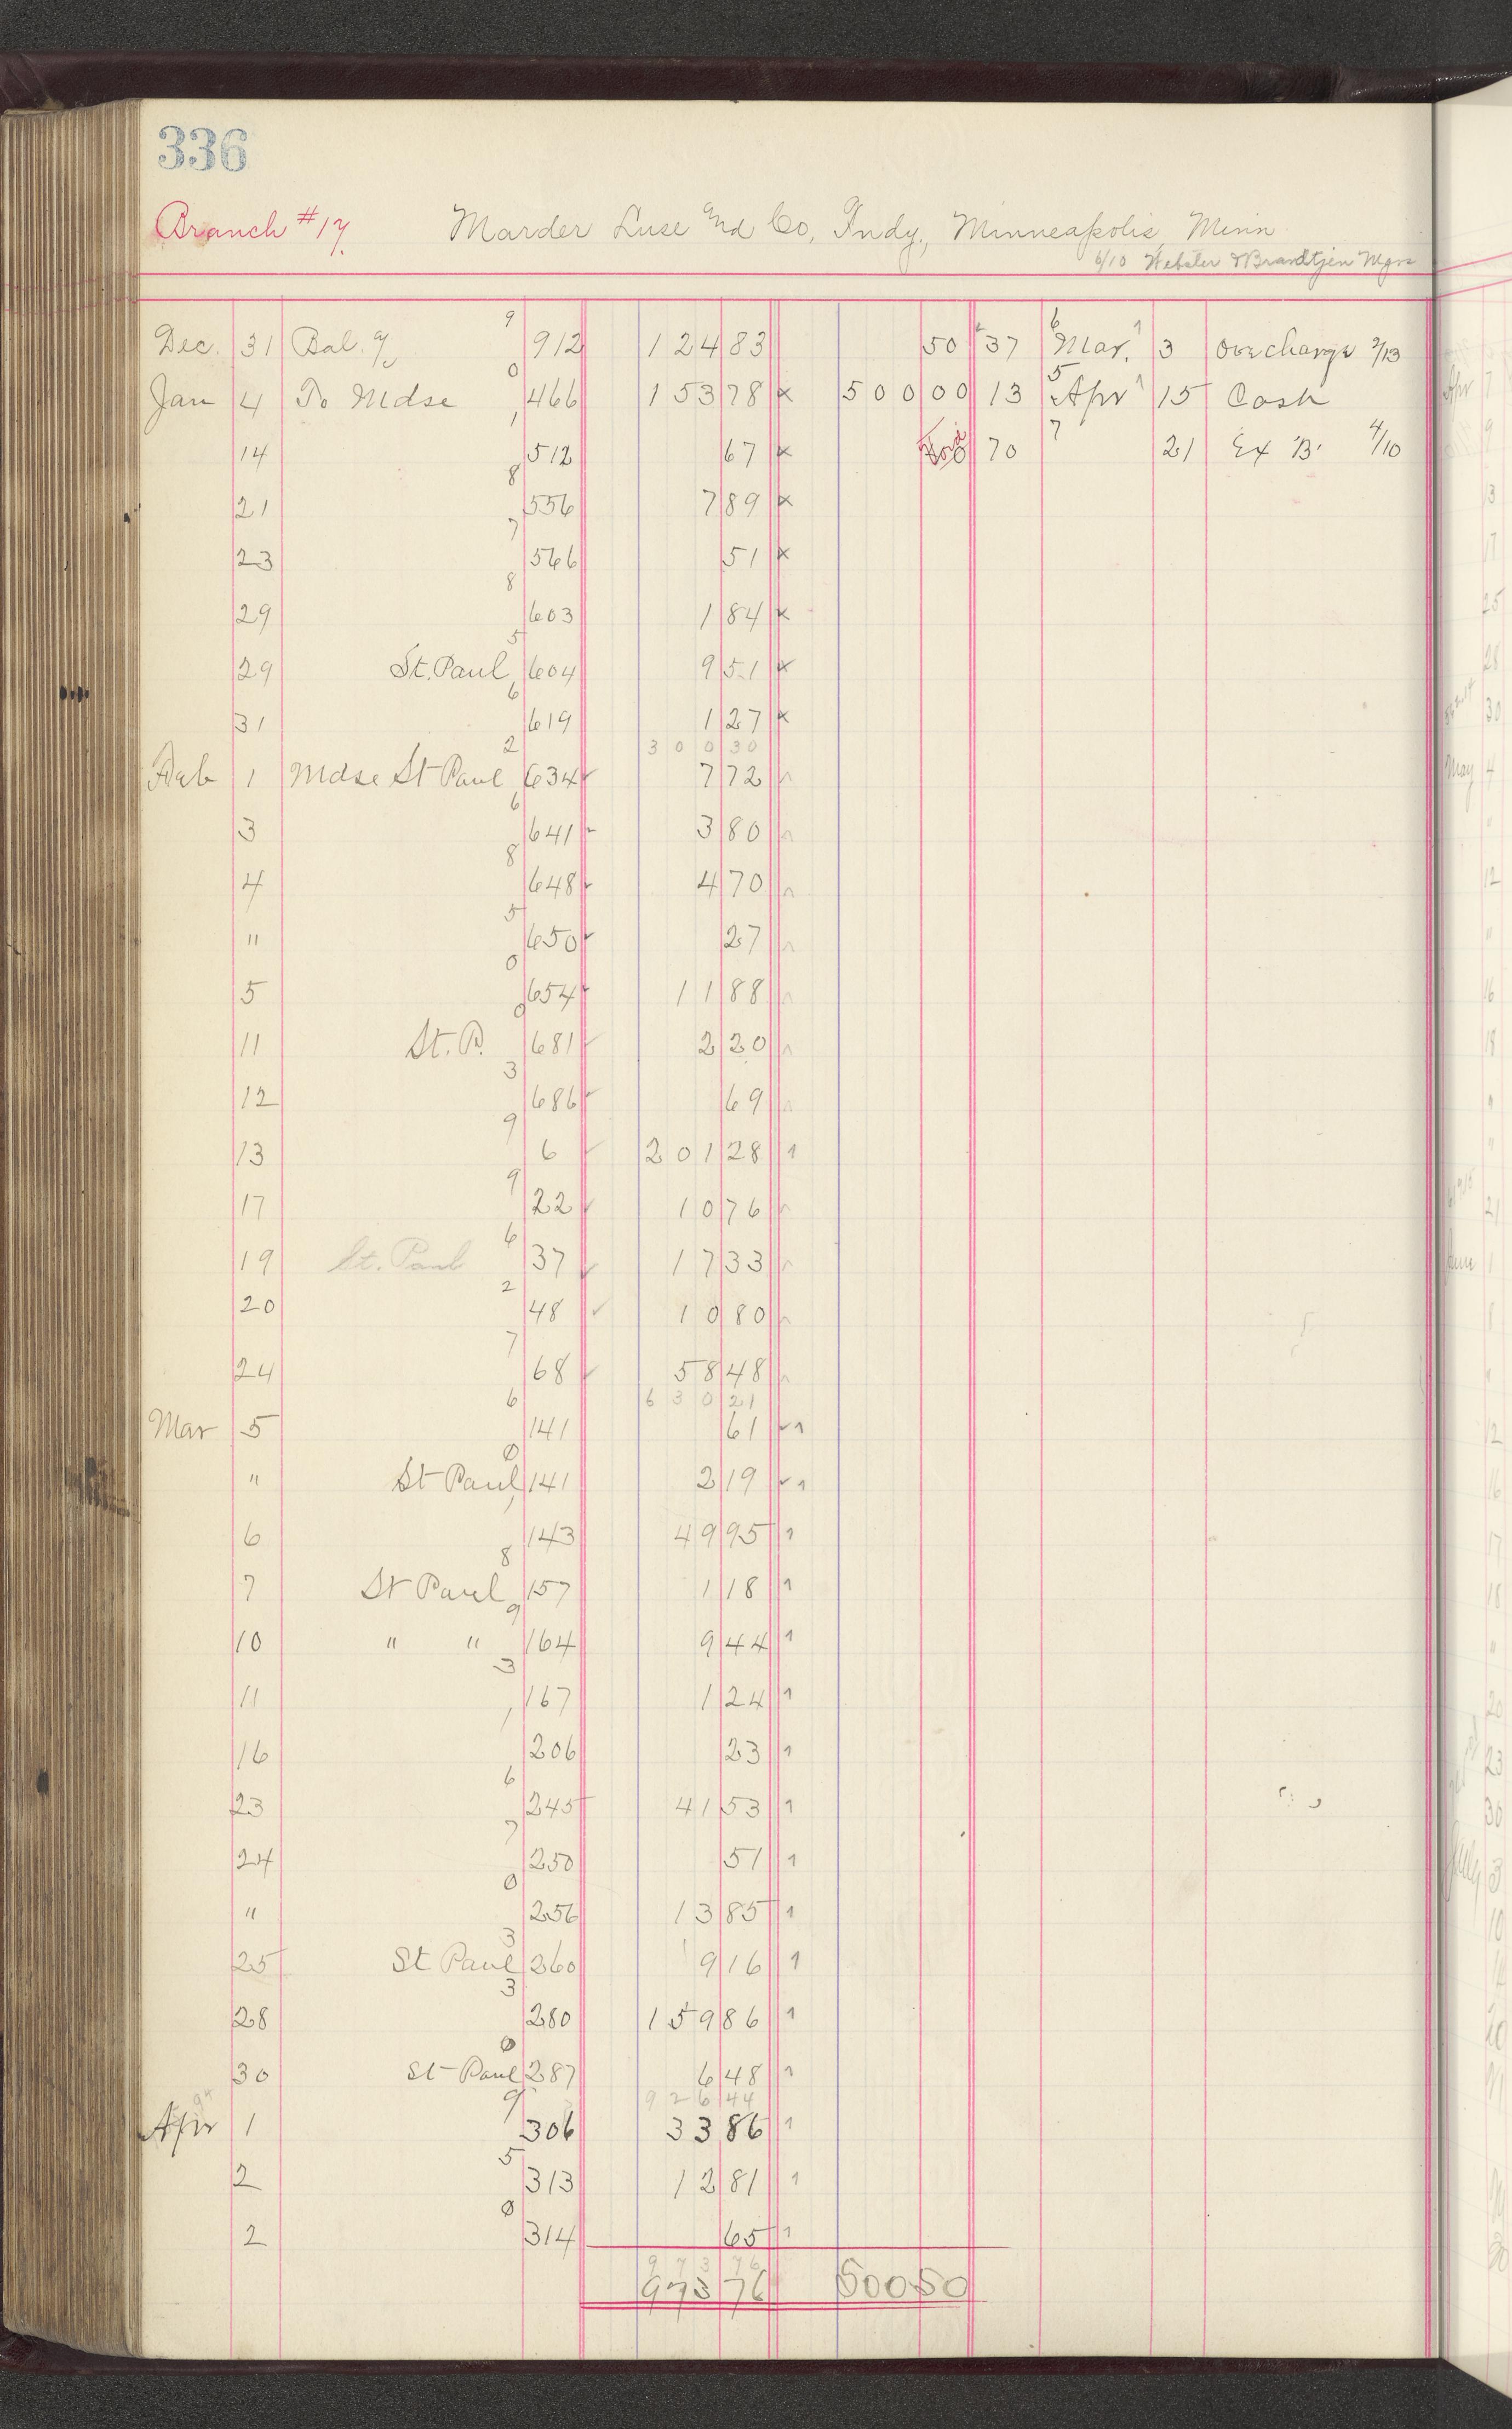 336
Branch #17. Marder Luse and Co, Indy., Minneapolis, Minn
6/10 Webster & Brandtjen Mgrs
Dec. 31 Bal. 9 912 124 83 50 37 6 Mar. 3 Overcharge 2/13
Jan 4 To Mdse 0 466 153 78 x 500 00 13 5 Apr 15 Cash
14 1 512 67 x 70 7 21 Ex "B" 4/10
21 8 556 7 89 x
23 7 566 51 x
29 8 603 1 84 x
29 St. Paul 5 604 9 51 x
31 6 619 1 27 x
300 30
Feb 1 Mdse St Paul 2 634 7 72
3 6 641 3 80
4 8 648 4 70
" 5 650 27
5 0 654 11 88
11 St. P. 0 681 2 20
12 3 686 69
13 9 6 201 28
17 9 22 10 76
19 St. Paul 6 37 17 33
20 2 48 10 80
24 7 68 58 48
630 21
Mar 5 6 141 61
" St Paul 0 141 2 19
6 1 143 49 95
7 St Paul 8 157 1 18
10 " " 9 164 9 44
11 3 167 1 24
16 1 206 23
23 6 245 41 53
24 7 250 51
" 0 256 13 85
25 St Paul 3 260 9 16
28 3 280 159 86
30 St Paul 0 287 6 48
926 44
Apr 1 9 306 33 86
2 5 313 12 81
2 0 314 65
973 76
973 76 500 50